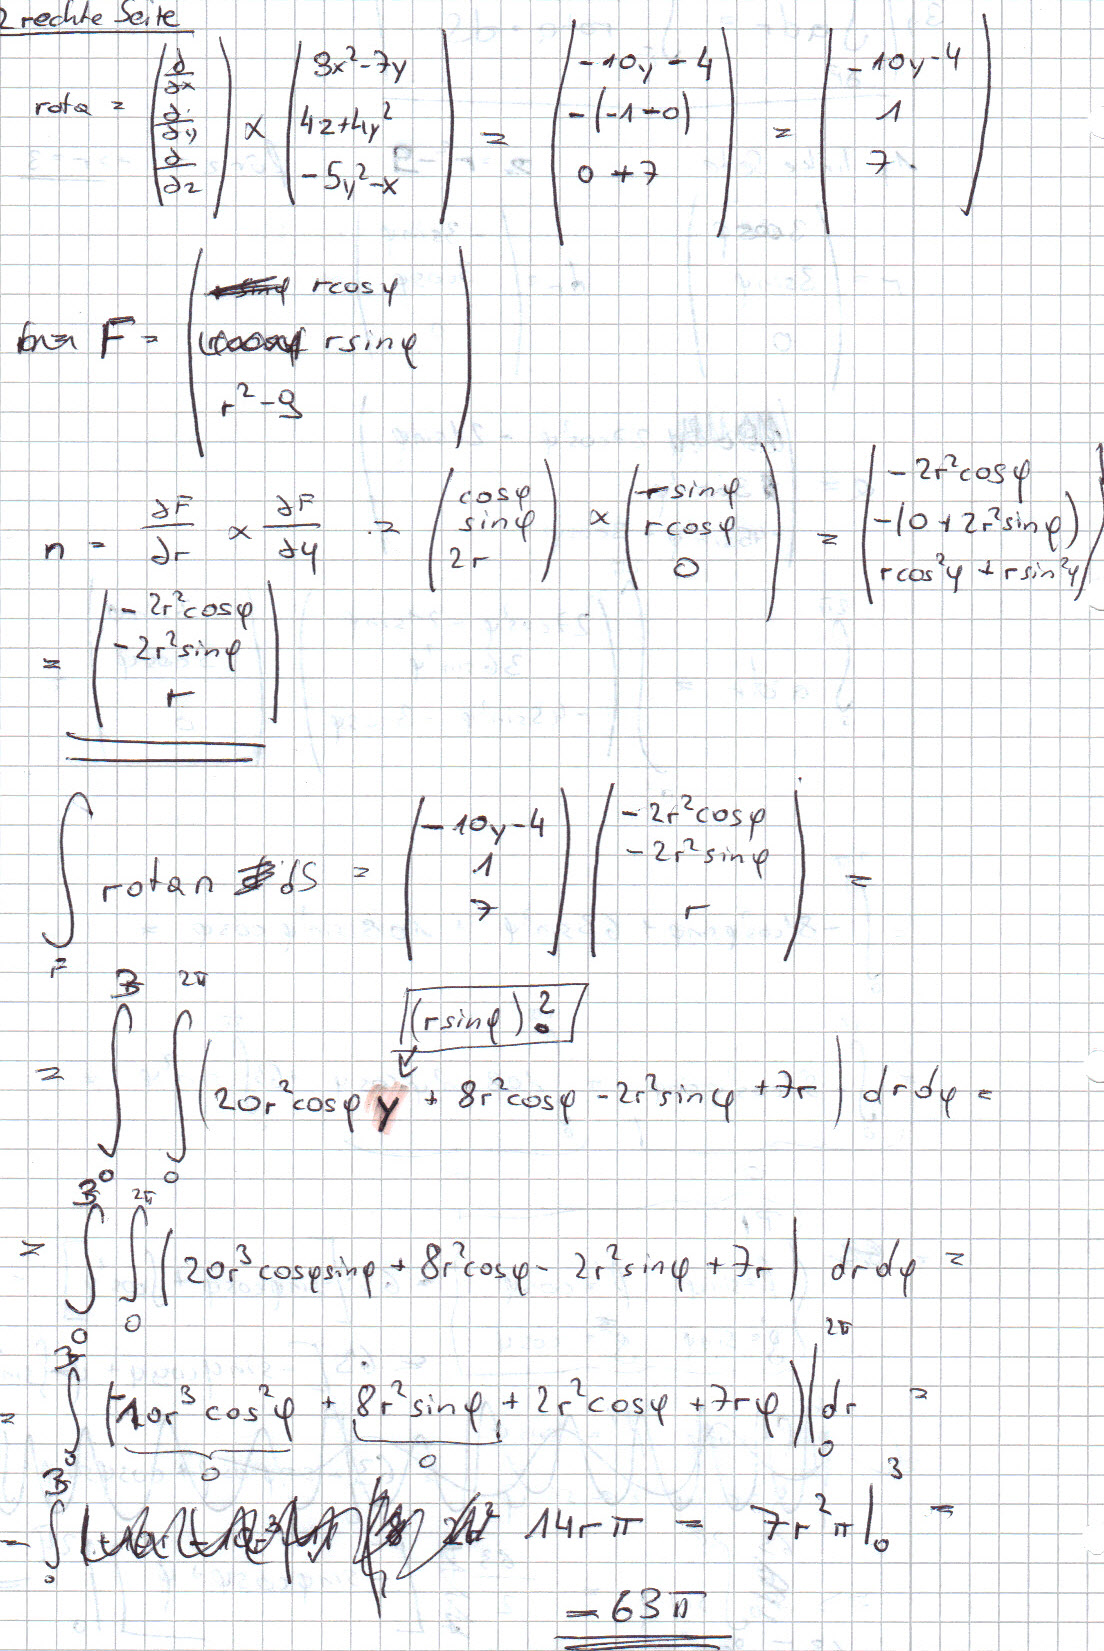 2 rechte Seite
rota = (∂/∂x, ∂/∂y, ∂/∂z) × (3x²-7y, 4z+4y², -5y²-x) = (-10y-4, -(-1-0), 0+7) = (-10y-4, 1, 7)
F = (rcosφ, rsinφ, r²-9)
n = ∂F/∂r × ∂F/∂φ = (cosφ, sinφ, 2r) × (-rsinφ, rcosφ, 0) = (-2r²cosφ, -(0+2r²sinφ), rcos²φ+rsin²φ)
= (-2r²cosφ, -2r²sinφ, r)
∫_F rota n dS = (-10y-4, 1, 7) (-2r²cosφ, -2r²sinφ, r) =
(rsinφ)?
= ∫₀³ ∫₀^2π (20r²cosφ y + 8r²cosφ - 2r²sinφ + 7r) dr dφ =
= ∫₀³ ∫₀^2π (20r³cosφsinφ + 8r²cosφ - 2r²sinφ + 7r) dr dφ =
= ∫₀³ (-10r³cos²φ + 8r²sinφ + 2r²cosφ + 7rφ)|₀^2π dr =
0 0
= ∫₀³ 14rπ = 7r²π|₀³ =
= 63π